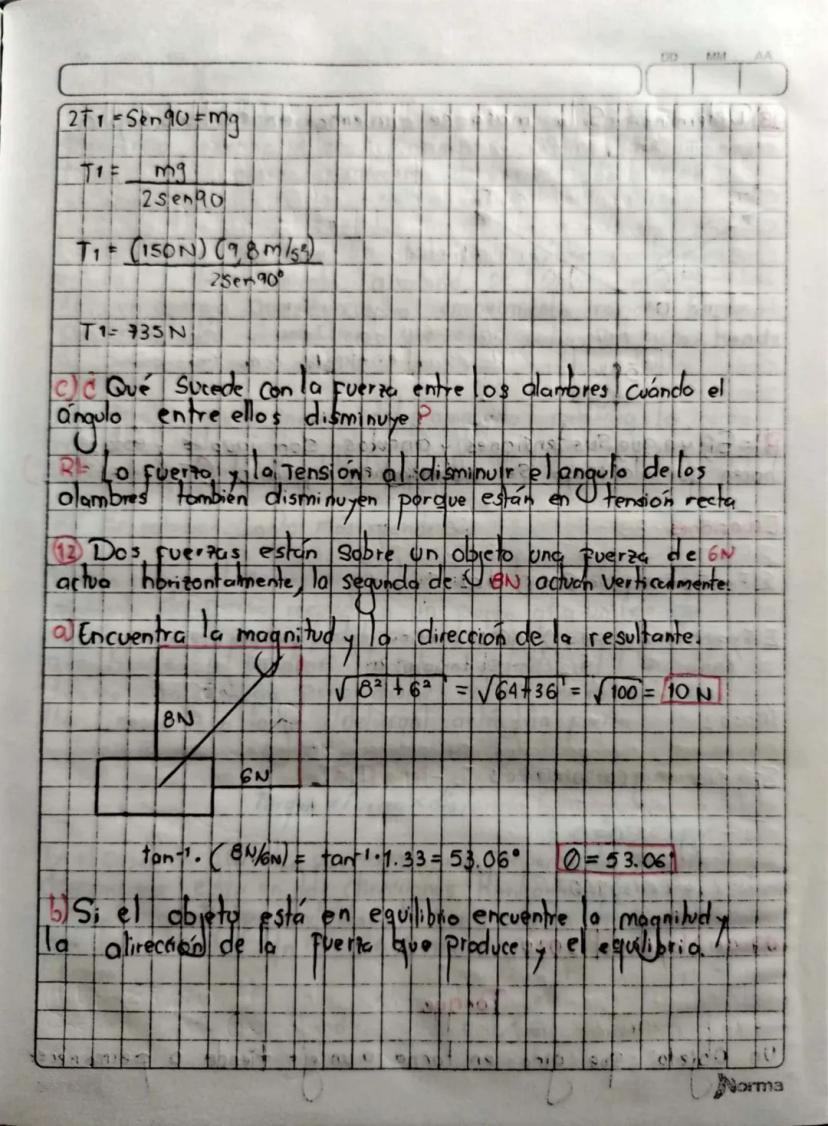 DD MM AA
2T1=Sen90=mg
T1= mg
2Sen90
T1 = (150N) (9,8m/s²)
2Sen90°
T1= 735N
c) ¿ Qué Sucede con la fuerza entre los alambres cuándo el
ángulo entre ellos disminuye?
R/= La fuerza y la Tensión al disminuir el angulo de los
alambres también disminuyen porque están en tensión recta
12 Dos fuerzas están sobre un objeto una fuerza de 6N
actua horizontalmente, la segunda de 8N actuan verticalmente.
a) Encuentra la magnitud y la dirección de la resultante.
√8² + 6² = √64+36 = √100 = 10 N
8N
6N
tan⁻¹ · (8N/6N) = tan⁻¹·1.33 = 53.06° Ø= 53.06°
b) Si el objeto está en equilibrio encuentre la magnitud y
la dirección de la fuerza que produce y el equilibrio.
Norma